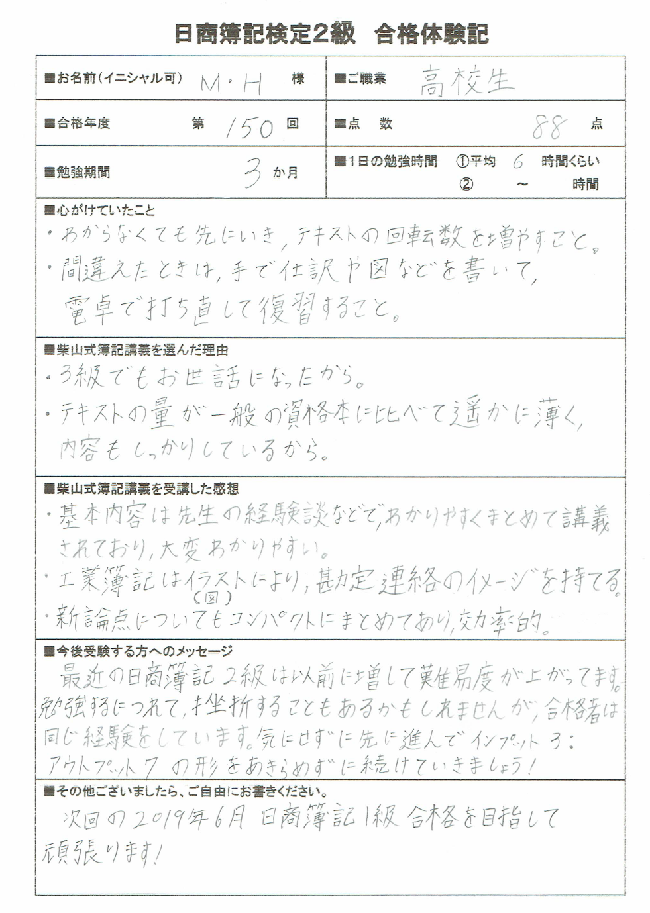 日商簿記検定2級 合格体験記
■お名前(イニシャル可) M・H 様 ■ご職業 高校生
■合格年度 第 150 回 ■点 数 88 点
■勉強期間 3 か月 ■1日の勉強時間 ①平均 6 時間くらい
② ～ 時間
■心がけていたこと
・わからなくても先にいき,テキストの回転数を増やすこと。
・間違えたときは,手で仕訳や図などを書いて,
電卓で打ち直して復習すること。
■柴山式簿記講義を選んだ理由
・3級でもお世話になったから。
・テキストの量が一般の資格本に比べて遥かに薄く,
内容もしっかりしているから。
■柴山式簿記講義を受講した感想
・基本内容は先生の経験談などで,わかりやすくまとめて講義
されており,大変わかりやすい。
・工業簿記はイラストにより,勘定連絡のイメージを持てる。
(図)
・新論点についてもコンパクトにまとめてあり,効率的。
■今後受験する方へのメッセージ
最近の日商簿記2級は以前に増して難易度が上がってます。
勉強するにつれて,挫折することもあるかもしれませんが,合格者は
同じ経験をしています。気にせずに先に進んでインプット3:
アウトプット7の形をあきらめずに続けていきましょう!
■その他ございましたら、ご自由にお書きください。
次回の2019年6月日商簿記1級合格を目指して
頑張ります!